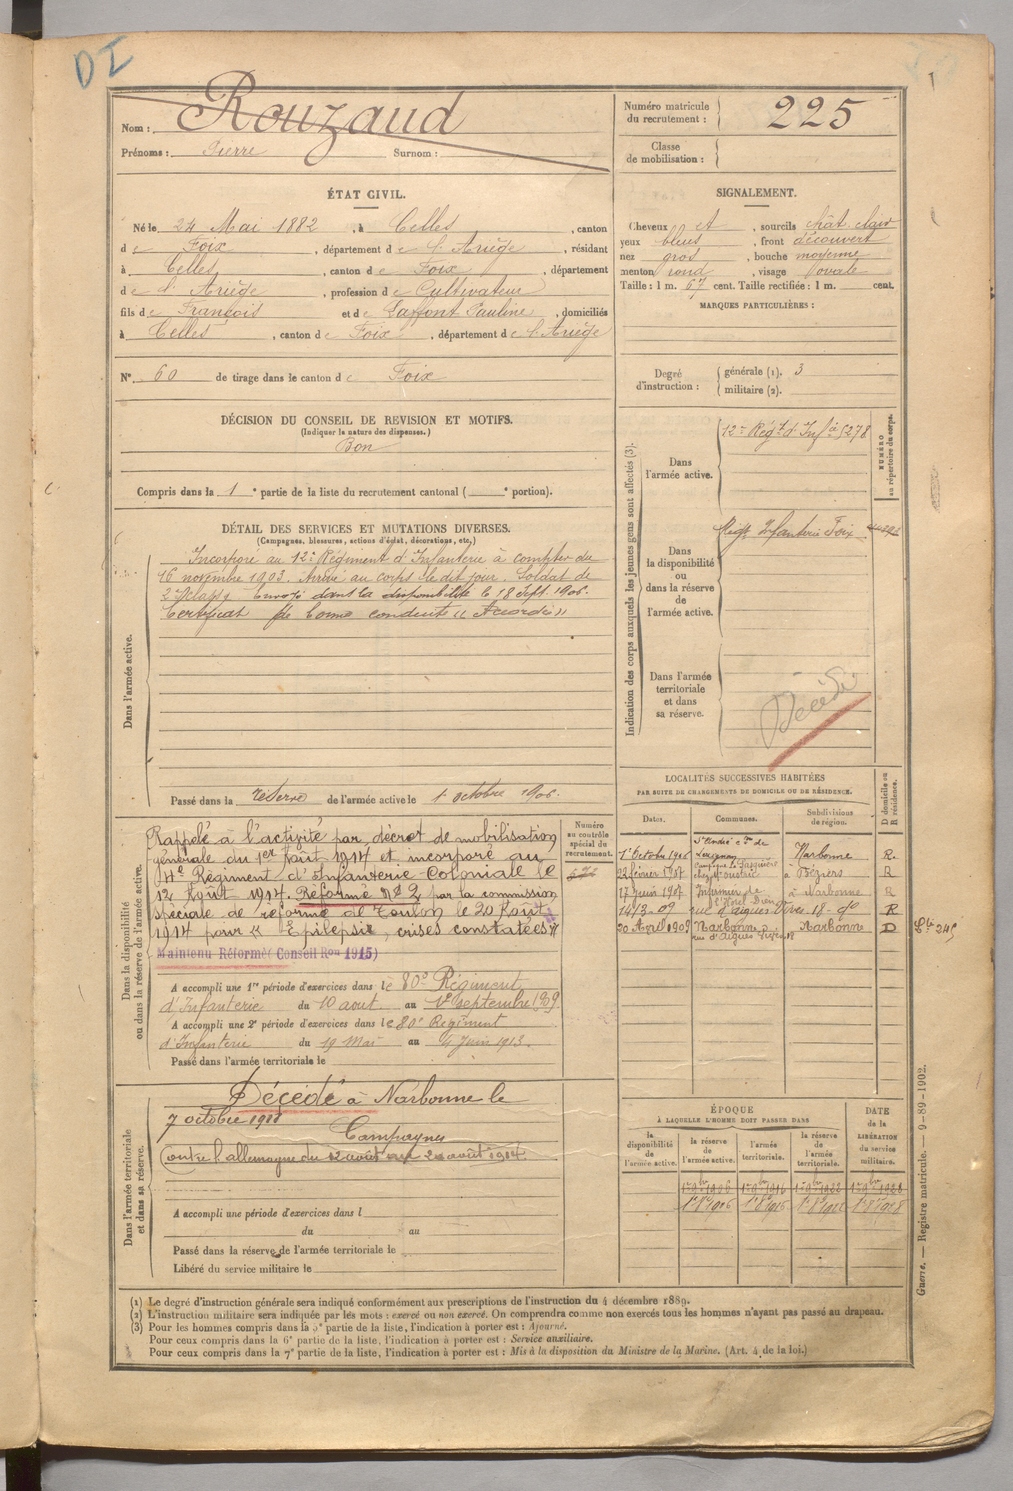 DI
Nom : Rouzaud
Prénoms : Pierre Surnom :
Numéro matricule du recrutement : 225
Classe de mobilisation :
ÉTAT CIVIL.
Né le 24 Mai 1882, à Celles, canton
de Foix, département de l'Ariège, résidant
à Celles, canton de Foix, département
de l'Ariège, profession de Cultivateur
fils de François et de Laffont Pauline, domiciliés
à Celles, canton de Foix, département de l'Ariège
N° 60 de tirage dans le canton de Foix
SIGNALEMENT.
Cheveux et, sourcils chât. clair
yeux bleus, front découvert
nez gros, bouche moyenne
menton rond, visage ovale
Taille : 1 m. 67 cent. Taille rectifiée : 1 m. cent.
MARQUES PARTICULIÈRES :
Degré d'instruction : générale (1). 3
militaire (2).
DÉCISION DU CONSEIL DE REVISION ET MOTIFS.
(Indiquer la nature des dispenses.)
Bon
Compris dans la 1e partie de la liste du recrutement cantonal ( e portion).
DÉTAIL DES SERVICES ET MUTATIONS DIVERSES.
(Campagnes, blessures, actions d'éclat, décorations, etc.)
Dans l'armée active.
Incorporé au 12e Régiment d'Infanterie à compter du
16 novembre 1903. Arrivé au corps le dit jour. Soldat de
2e classe. Envoyé dans la disponibilité le 18 Sept. 1906.
Certificat de bonne conduite « Accordé »
Passé dans la réserve de l'armée active le 1 octobre 1906.
Indication des corps auxquels les jeunes gens sont affectés (3).
NUMÉRO au répertoire du corps.
Dans l'armée active.
12e Régt d'Infie 5278
Dans la disponibilité ou dans la réserve de l'armée active.
Régt Infanterie Foix
Dans l'armée territoriale et dans sa réserve.
Décédé
Dans la disponibilité ou dans la réserve de l'armée active.
Numéro au contrôle spécial du recrutement.
Rappelé à l'activité par décret de mobilisation
générale du 1er Août 1914 et incorporé au
4e Régiment d'Infanterie Coloniale le
12 Août 1914. Réformé N° 2 par la commission
spéciale de réforme de Toulon le 20 Août
1914 pour « Epilepsie, crises constatées »
Maintenu Réformé (Conseil Ron 1915)
A accompli une 1re période d'exercices dans le 80e Régiment
d'Infanterie du 10 aout au 1er septembre 1909.
A accompli une 2e période d'exercices dans le 80e Régiment
d'Infanterie du 19 Mai au 4 Juin 1913.
Passé dans l'armée territoriale le
LOCALITÉS SUCCESSIVES HABITÉES
PAR SUITE DE CHANGEMENTS DE DOMICILE OU DE RÉSIDENCE.
Dates. Communes. Subdivisions de région. D domicile ou R résidence.
1er Octobre 1906 St André cton de Lezignan Narbonne R.
22 février 1907 Béziers R
17 Juin 1907 Infirmier de l'Hôtel Dieu à Narbonne R
14/3-09 rue d'aigues Vives. 18 - do R
20 Avril 1909 Narbonne rue d'aigues vives 18 Narbonne D
Dans l'armée territoriale et dans sa réserve.
Décédé à Narbonne le
7 octobre 1918
Campagnes
contre l'allemagne du 12 août au 20 août 1914
A accompli une période d'exercices dans l
du au
Passé dans la réserve de l'armée territoriale le
Libéré du service militaire le
ÉPOQUE
À LAQUELLE L'HOMME DOIT PASSER DANS
la disponibilité de l'armée active. la réserve de l'armée active. l'armée territoriale. la réserve de l'armée territoriale. DATE de la LIBÉRATION du service militaire.
1er 9bre 1906 1er 9bre 1916 1er 9bre 1922 1er 9bre 1928
Guerre. — Registre matricule. — 9-89-1902.
(1) Le degré d'instruction générale sera indiqué conformément aux prescriptions de l'instruction du 4 décembre 1889.
(2) L'instruction militaire sera indiquée par les mots : exercé ou non exercé. On comprendra comme non exercés tous les hommes n'ayant pas passé au drapeau.
(3) Pour les hommes compris dans la 5e partie de la liste, l'indication à porter est : Ajourné.
Pour ceux compris dans la 6e partie de la liste, l'indication à porter est : Service auxiliaire.
Pour ceux compris dans la 7e partie de la liste, l'indication à porter est : Mis à la disposition du Ministre de la Marine. (Art. 4 de la loi.)